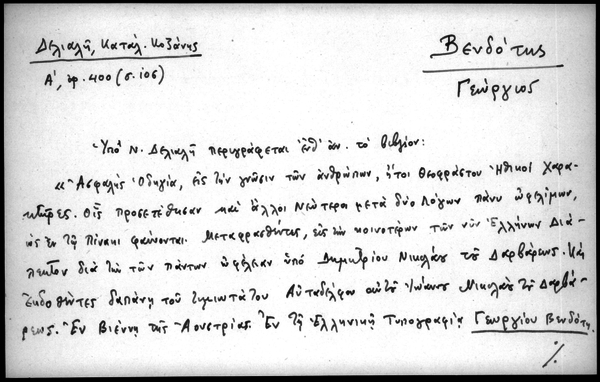 Δελιαλῆ, Κατάλ. Κοζάνης
Βενδότης
Α', ἀρ. 400 (σ. 106)
Γεώργιος
Ὑπὸ Ν. Δελιαλῆ περιγράφεται ἐνθ' ἀν. τὸ βιβλίον:
«Ἀσφαλὴς Ὁδηγία, εἰς τὴν γνῶσιν τῶν ἀνθρώπων, ἤτοι Θεοφράστου Ἠθικοὶ Χαρα-
κτῆρες. Οἷς προσετέθησαν καὶ ἄλλοι Νεώτεροι μετὰ δύο Λόγων πάνυ ὠφελίμων,
ὡς ἐν τῇ Πίνακι φαίνονται. Μεταφρασθέντες, εἰς τὴν κοινοτέραν τῶν νῦν Ἑλλήνων Διά-
λεκτον διὰ τὴν τῶν πάντων ὠφέλειαν ὑπὸ Δημητρίου Νικολάου τοῦ Δαρβάρεως. Καὶ
Ἐκδοθέντες δαπάνῃ τοῦ τιμιωτάτου Αὐταδέλφου αὐτοῦ Ἰωάννου Νικολάου τοῦ Δαρβά-
ρεως. Ἐν Βιέννῃ τῆς Ἀουστρίας. Ἐν τῇ Ἑλληνικῇ Τυπογραφίᾳ Γεωργίου Βενδότη.
./.